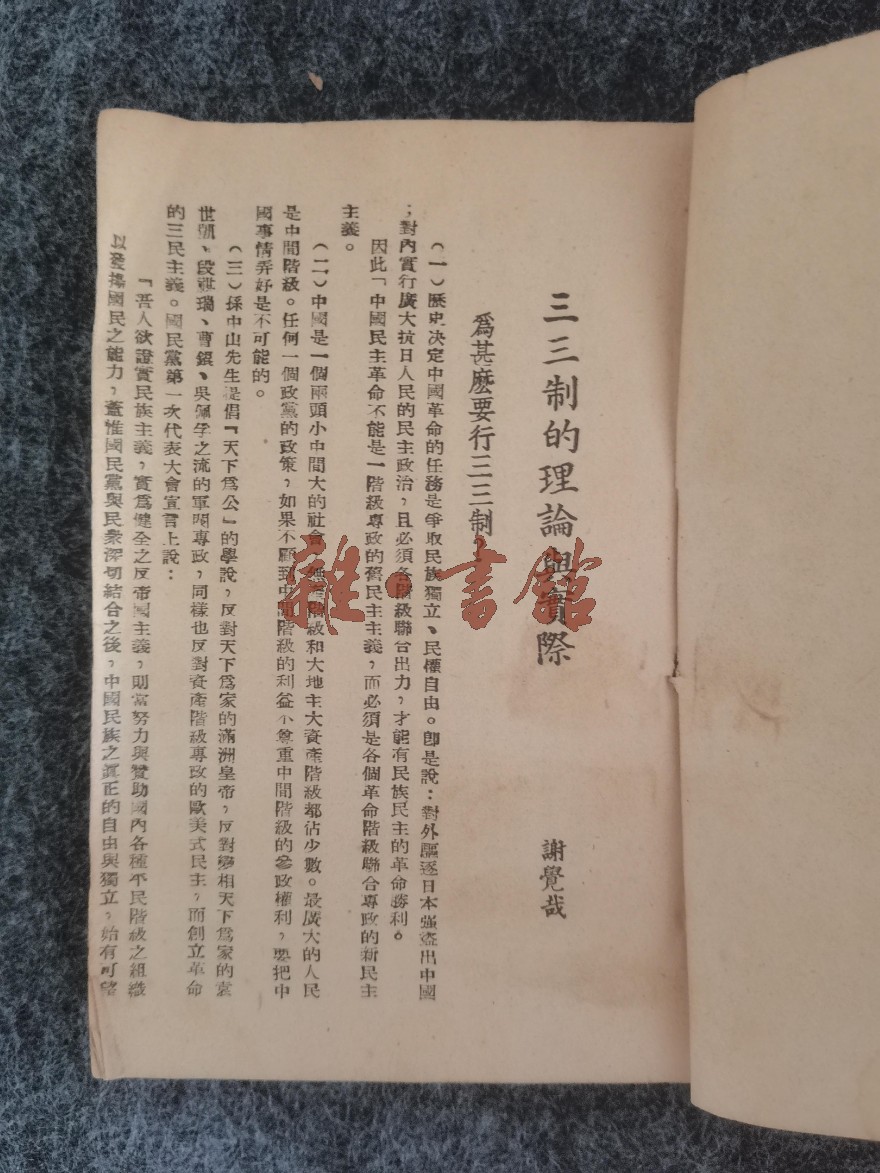 三三制的理論與實際
謝覺哉
爲甚麼要行三三制
（一）歷史决定中國革命的任務是爭取民族獨立、民權自由。卽是說：對外驅逐日本强盗出中國
；對內實行廣大抗日人民的民主政治，且必須各階級聯合出力，才能有民族民主的革命勝利。
因此「中國民主革命不能是一階級專政的舊民主主義，而必須是各個革命階級聯合專政的新民主
主義。
（二）中國是一個兩頭小中間大的社會，無產階級和大地主大資產階級都佔少數。最廣大的人民
是中間階級。任何一個政黨的政策，如果不顧到中間階級的利益不尊重中間階級的參政權利，要把中
國事情弄好是不可能的。
（三）孫中山先生提倡『天下爲公』的學說，反對天下爲家的滿洲皇帝，反對變相天下爲家的袁
世凱、段祺瑞、曹錕、吳佩孚之流的軍閥專政，同樣也反對資產階級專政的歐美式民主，而創立革命
的三民主義。國民黨第一次代表大會宣言上說：
『吾人欲證實民族主義，實爲健全之反帝國主義，則當努力與贊助國內各種平民階級之組織
以發揚國民之能力，蓋惟國民黨與民衆深切結合之後，中國民族之眞正的自由與獨立，始有可望
雜·書館